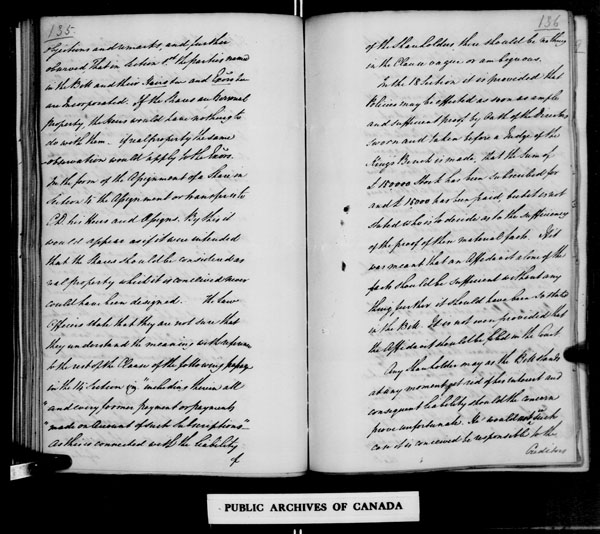 135.
objections and remarks, and further
observed that in Section 1st the parties named
in the Bill and their Heirs &c and Exors &c
are Incorporated. If the Shares are Personal
Property, the Heirs would have nothing to
do with them. if real property the same
observation would apply to the Exors.
In the form of the Assignment of a Share in
Section 15 the Assignment or transfer is to
C.D. his Heirs and Assigns. By this it
would appear as if it were intended
that the Shares should be considered as
real property which it is conceived never
could have been designed. The Law
Officers state that they are not sure that
they understand the meaning with reference
to the rest of the Clause of the following
in the 14 Section "including therein all
"and every former payment or payments
"made on Account of such Subscriptions"
As this is connected with the liability
of
136
of the Shareholders there should be nothing
in the Clause vague or ambiguous.
In the 18 Section it is provided that
Policies may be effected as soon as ample
and sufficient proof by Oath of the Directors
sworn and taken before a Judge of the
Kings Bench is made, that the Sum of
Stock has been subscribed for
and £ 15000 has been paid, but it is not
stated who is to decide as to the sufficiency
of the proof of these material facts. If it
was meant that an Affidavit alone of the
facts should be sufficient without any
thing further it should have been so stated
in the Bill. It is not even provided that
the Affidavit should be filed in the Court
Any Shareholder may as the Bill stands
at any moment get rid of his interest and
consequent liability should the concern
prove unfortunate. He would not in such
case it is conceived be responsible to the
Creditors
PUBLIC ARCHIVES OF CANADA